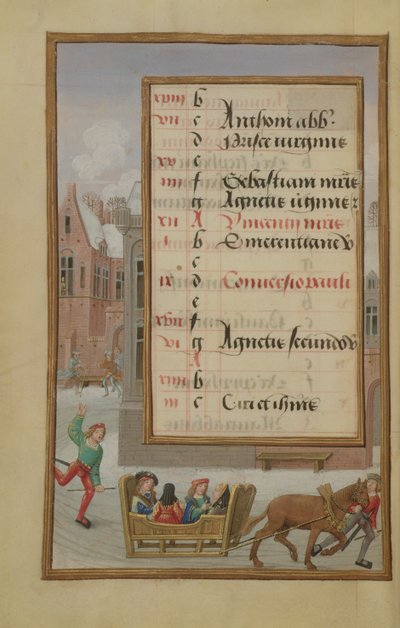 xviii b
vii c Anthoni abb'.
d Prisce virginis
xv e
iiii f Sebastiani mris
g Agnetis virginis
xii A Vincentii mris
i b Emerentiane v
c
ix d Conversio pauli
e
xvii f
vi g Agnetis secundo
A
xiiii b
iii c Ciri et iohnis